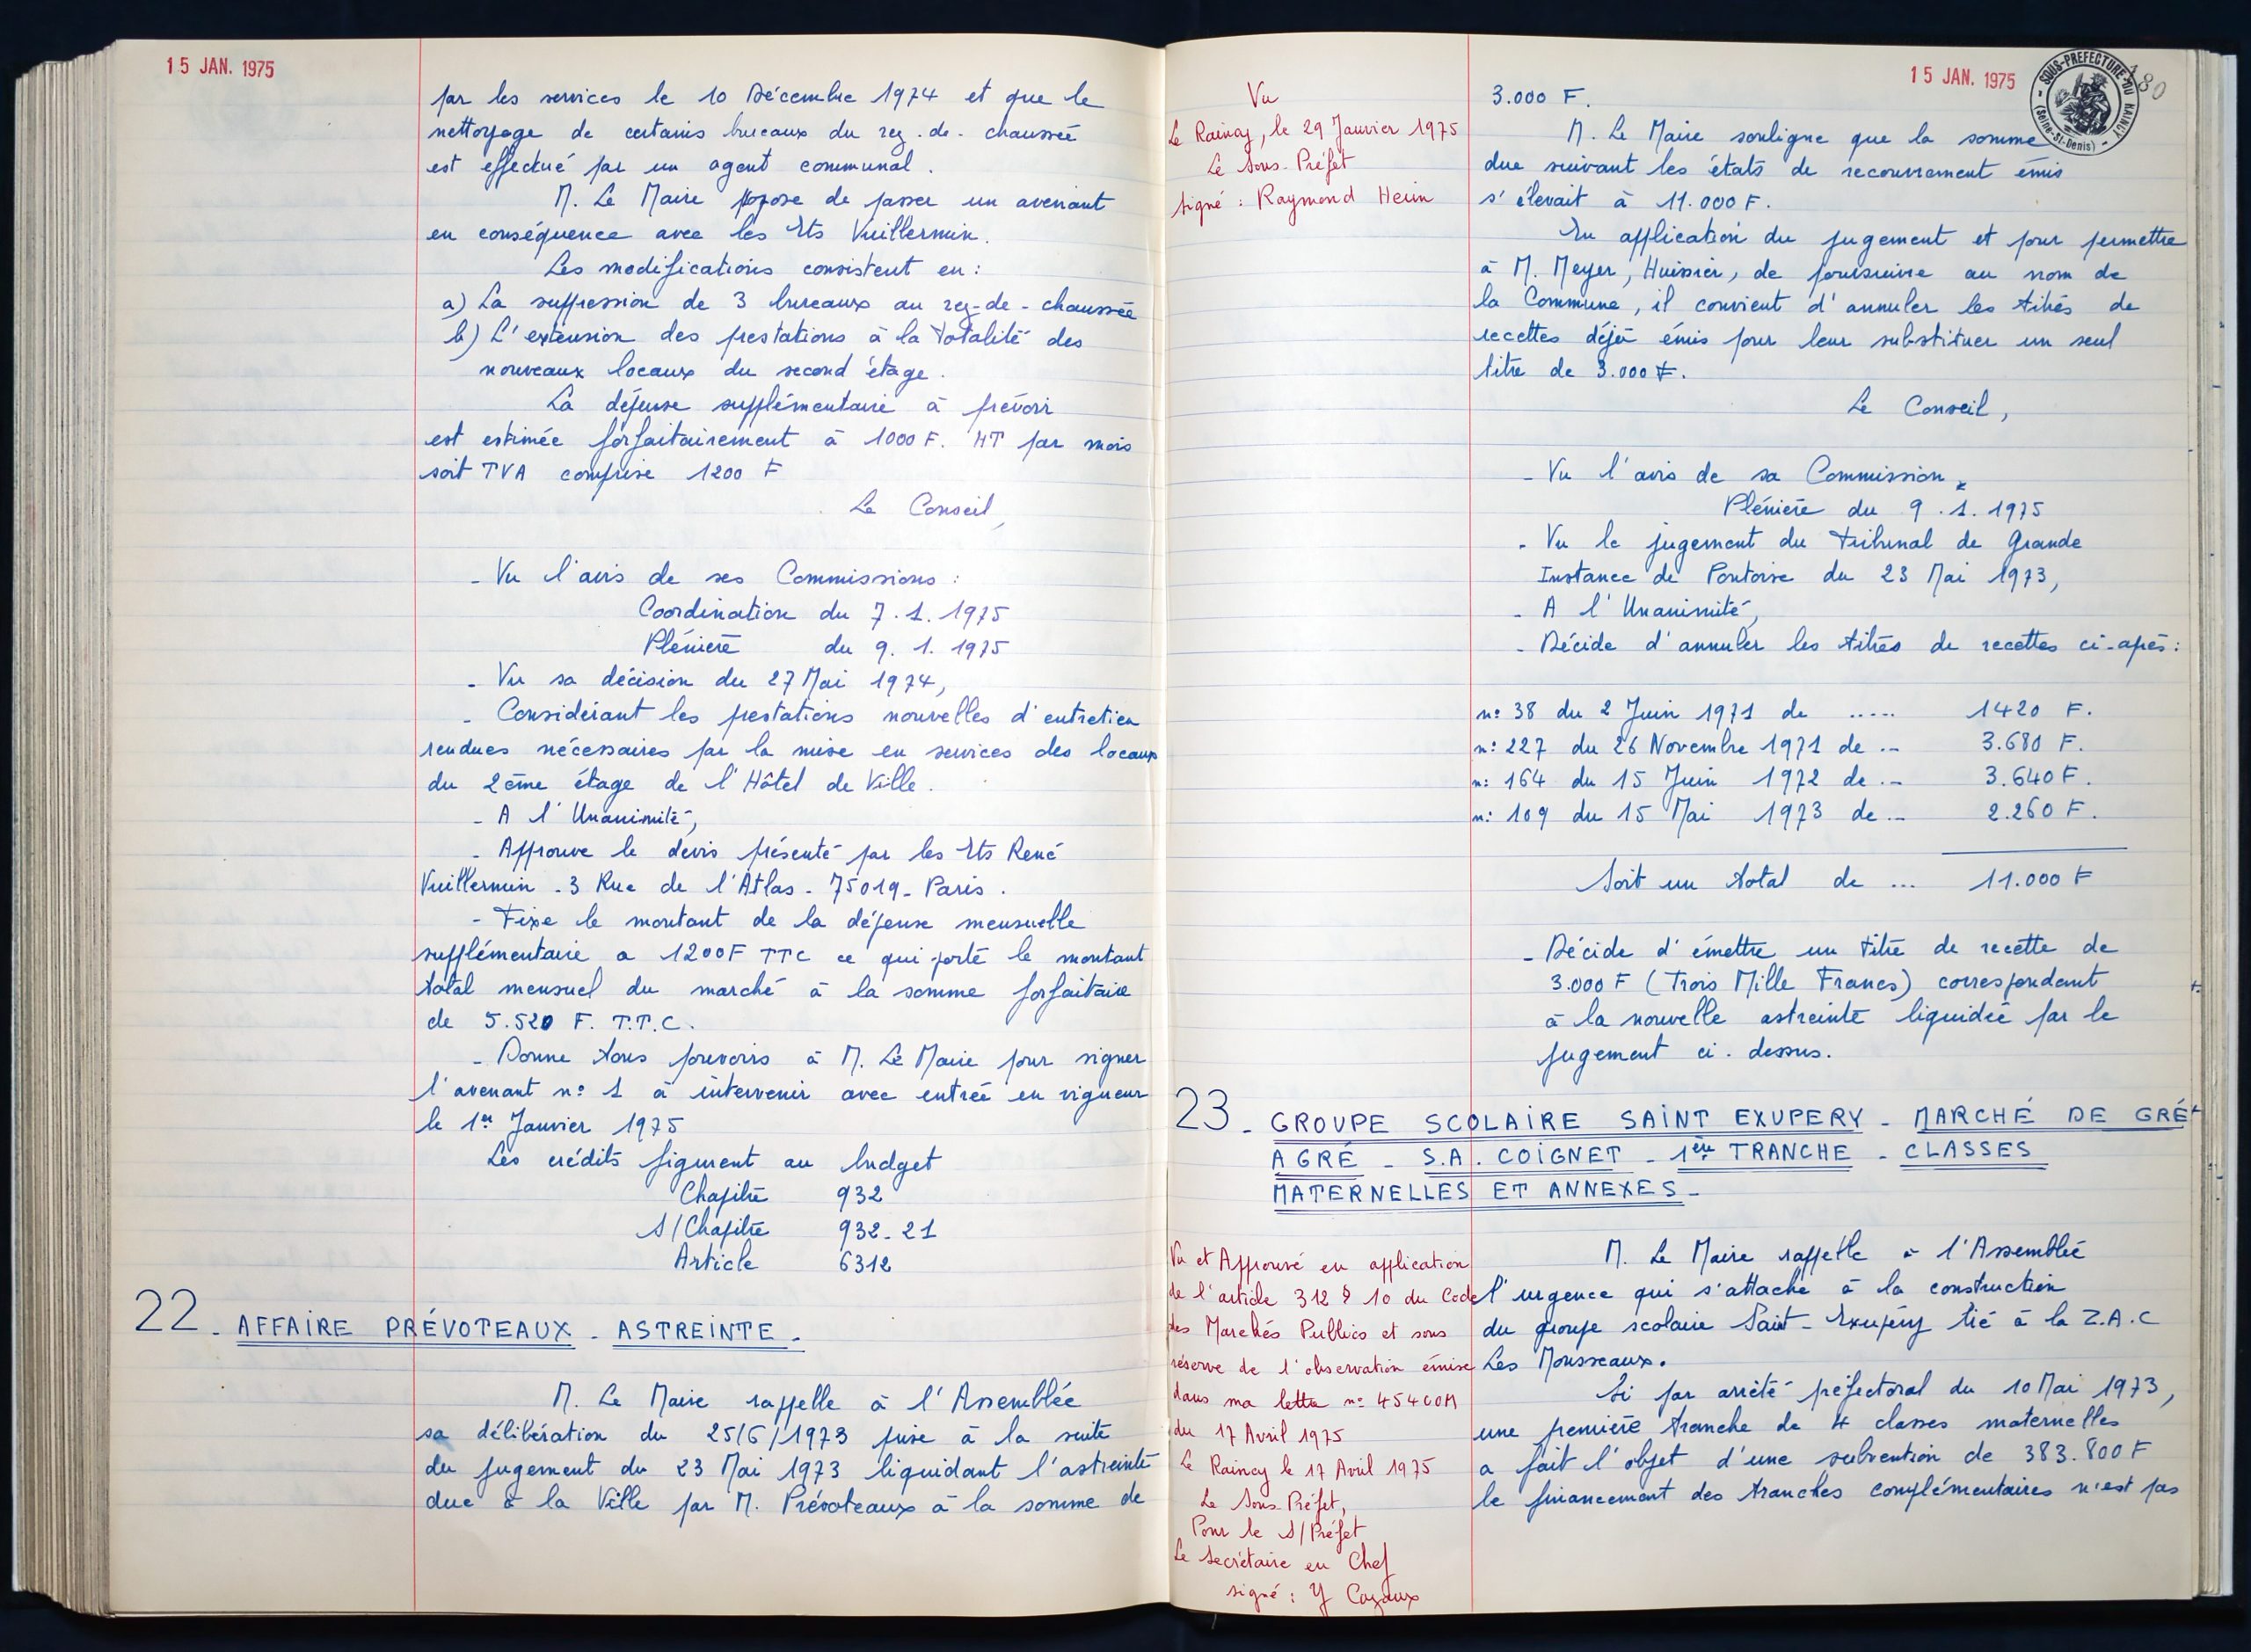 15 JAN. 1975
par les services le 10 Décembre 1974 et que le
nettoyage de certains bureaux du rez-de-chaussée
est effectué par un agent communal.
M. Le Maire propose de passer un avenant
en conséquence avec les Ets Vuillermin.
Les modifications consistent en :
a) La suppression de 3 bureaux au rez-de-chaussée
b) L'extension des prestations à la totalité des
nouveaux locaux du second étage.
La dépense supplémentaire à prévoir
est estimée forfaitairement à 1000 F. HT par mois
soit TVA comprise 1200 F
Le Conseil,
- Vu l'avis de ses Commissions :
Coordination du 7.1.1975
Plénière du 9.1.1975
- Vu sa décision du 27 Mai 1974,
- Considérant les prestations nouvelles d'entretien
rendues nécessaires par la mise en services des locaux
du 2ème étage de l'Hôtel de Ville.
- A l'Unanimité,
- Approuve le devis présenté par les Ets René
Vuillermin - 3 Rue de l'Atlas - 75019 - Paris.
- Fixe le montant de la dépense mensuelle
supplémentaire a 1200F TTC ce qui porte le montant
total mensuel du marché à la somme forfaitaire
de 5.520 F. T.T.C.
- Donne tous pouvoirs à M. Le Maire pour signer
l'avenant n° 1 à intervenir avec entrée en vigueur
le 1er Janvier 1975
Les crédits figurent au budget
Chapitre 932
S/Chapitre 932-21
Article 6312
22 - AFFAIRE PRÉVOTEAUX - ASTREINTE -
M. Le Maire rappelle à l'Assemblée
sa délibération du 25/6/1973 prise à la suite
du jugement du 23 Mai 1973 liquidant l'astreinte
due à la Ville par M. Prévoteaux à la somme de
15 JAN. 1975
SOUS-PREFECTURE DU RAINCY
(Seine-St-Denis)
180
Vu
Le Raincy, le 29 Janvier 1975
Le Sous-Préfet
signé : Raymond Heim
3.000 F.
M. Le Maire souligne que la somme
due suivant les états de recouvrement émis
s'élevait à 11.000 F.
En application du jugement et pour permettre
à M. Meyer, Huissier, de poursuivre au nom de
la Commune, il convient d'annuler les titres de
recettes déjà émis pour leur substituer un seul
titre de 3.000 F.
Le Conseil,
- Vu l'avis de sa Commission
Plénière du 9.1.1975
- Vu le jugement du Tribunal de Grande
Instance de Pontoise du 23 Mai 1973,
- A l'Unanimité,
- Décide d'annuler les titres de recettes ci-après :
n° 38 du 2 Juin 1971 de ..... 1420 F.
n° 227 du 26 Novembre 1971 de ... 3.680 F.
n° 164 du 15 Juin 1972 de ... 3.640 F.
n° 109 du 15 Mai 1973 de ... 2.260 F.
Soit un total de ... 11.000 F
- Décide d'émettre un titre de recette de
3.000 F (Trois Mille Francs) correspondant
à la nouvelle astreinte liquidée par le
jugement ci-dessus.
23 - GROUPE SCOLAIRE SAINT EXUPERY - MARCHÉ DE GRÉ
A GRÉ - S.A. COIGNET - 1ère TRANCHE - CLASSES
MATERNELLES ET ANNEXES -
Vu et Approuvé en application
de l'article 312 § 10 du Code
des Marchés Publics et sous
réserve de l'observation émise
dans ma lettre n°
du 17 Avril 1975
Le Raincy le 17 Avril 1975
Le Sous-Préfet,
Pour le S/Préfet
Le Secrétaire en Chef
signé : Y Cazaux
M. Le Maire rappelle à l'Assemblée
l'urgence qui s'attache à la construction
du groupe scolaire Saint-Exupéry lié à la Z.A.C
Les Mousseaux.
Si par arrêté préfectoral du 10 Mai 1973,
une première tranche de 4 classes maternelles
a fait l'objet d'une subvention de 383.800 F
le financement des tranches complémentaires n'est pas